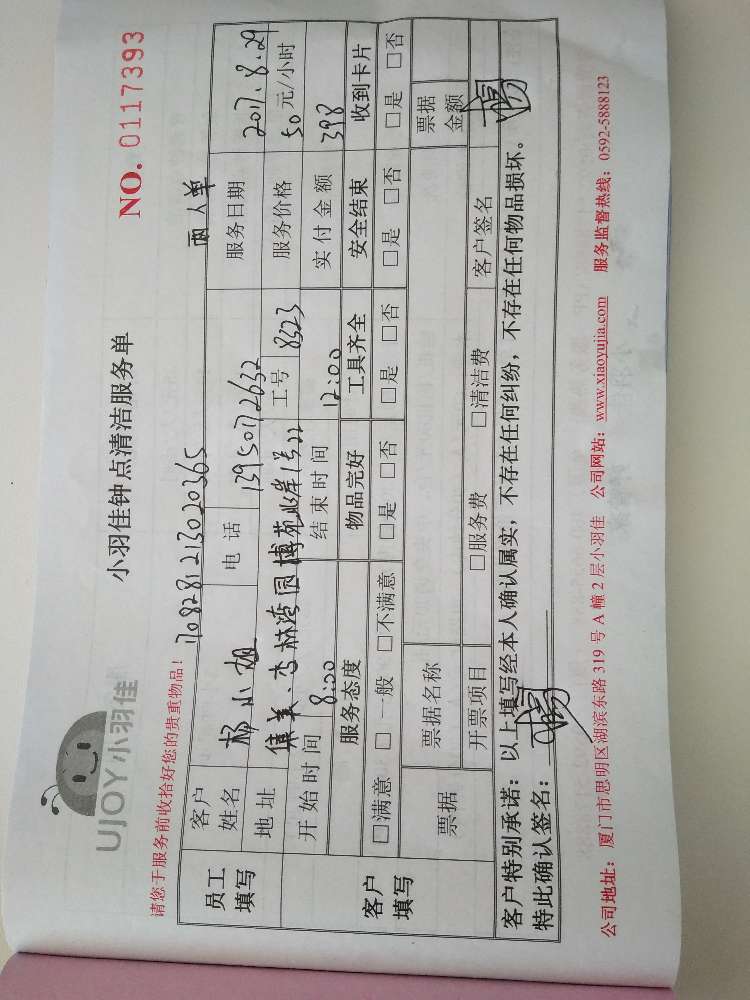 UJOY小羽佳
小羽佳钟点清洁服务单
NO. 0117393
请您于服务前收拾好您的贵重物品！
1708281213020365
两人单
员工填写
客户姓名 杨小姐 电话 13950172632 服务日期 2017.8.29
地址 集美、杏林湾园博苑 工号 8523 服务价格 50元/小时
客户填写
开始时间 8:00 结束时间 12:00 实付金额 398
服务态度 物品完好 工具齐全 安全结束 收到卡片
□满意 □一般 □不满意 □是 □否 □是 □否 □是 □否 □是 □否
票据 票据名称 票据金额
开票项目 □服务费 □清洁费 客户签名
客户特别承诺：以上填写经本人确认属实，不存在任何纠纷，不存在任何物品损坏。
特此确认签名：
公司地址：厦门市思明区湖滨东路319号A幢2层小羽佳 公司网站：www.xiaoyujia.com 服务监督热线：0592-5888123